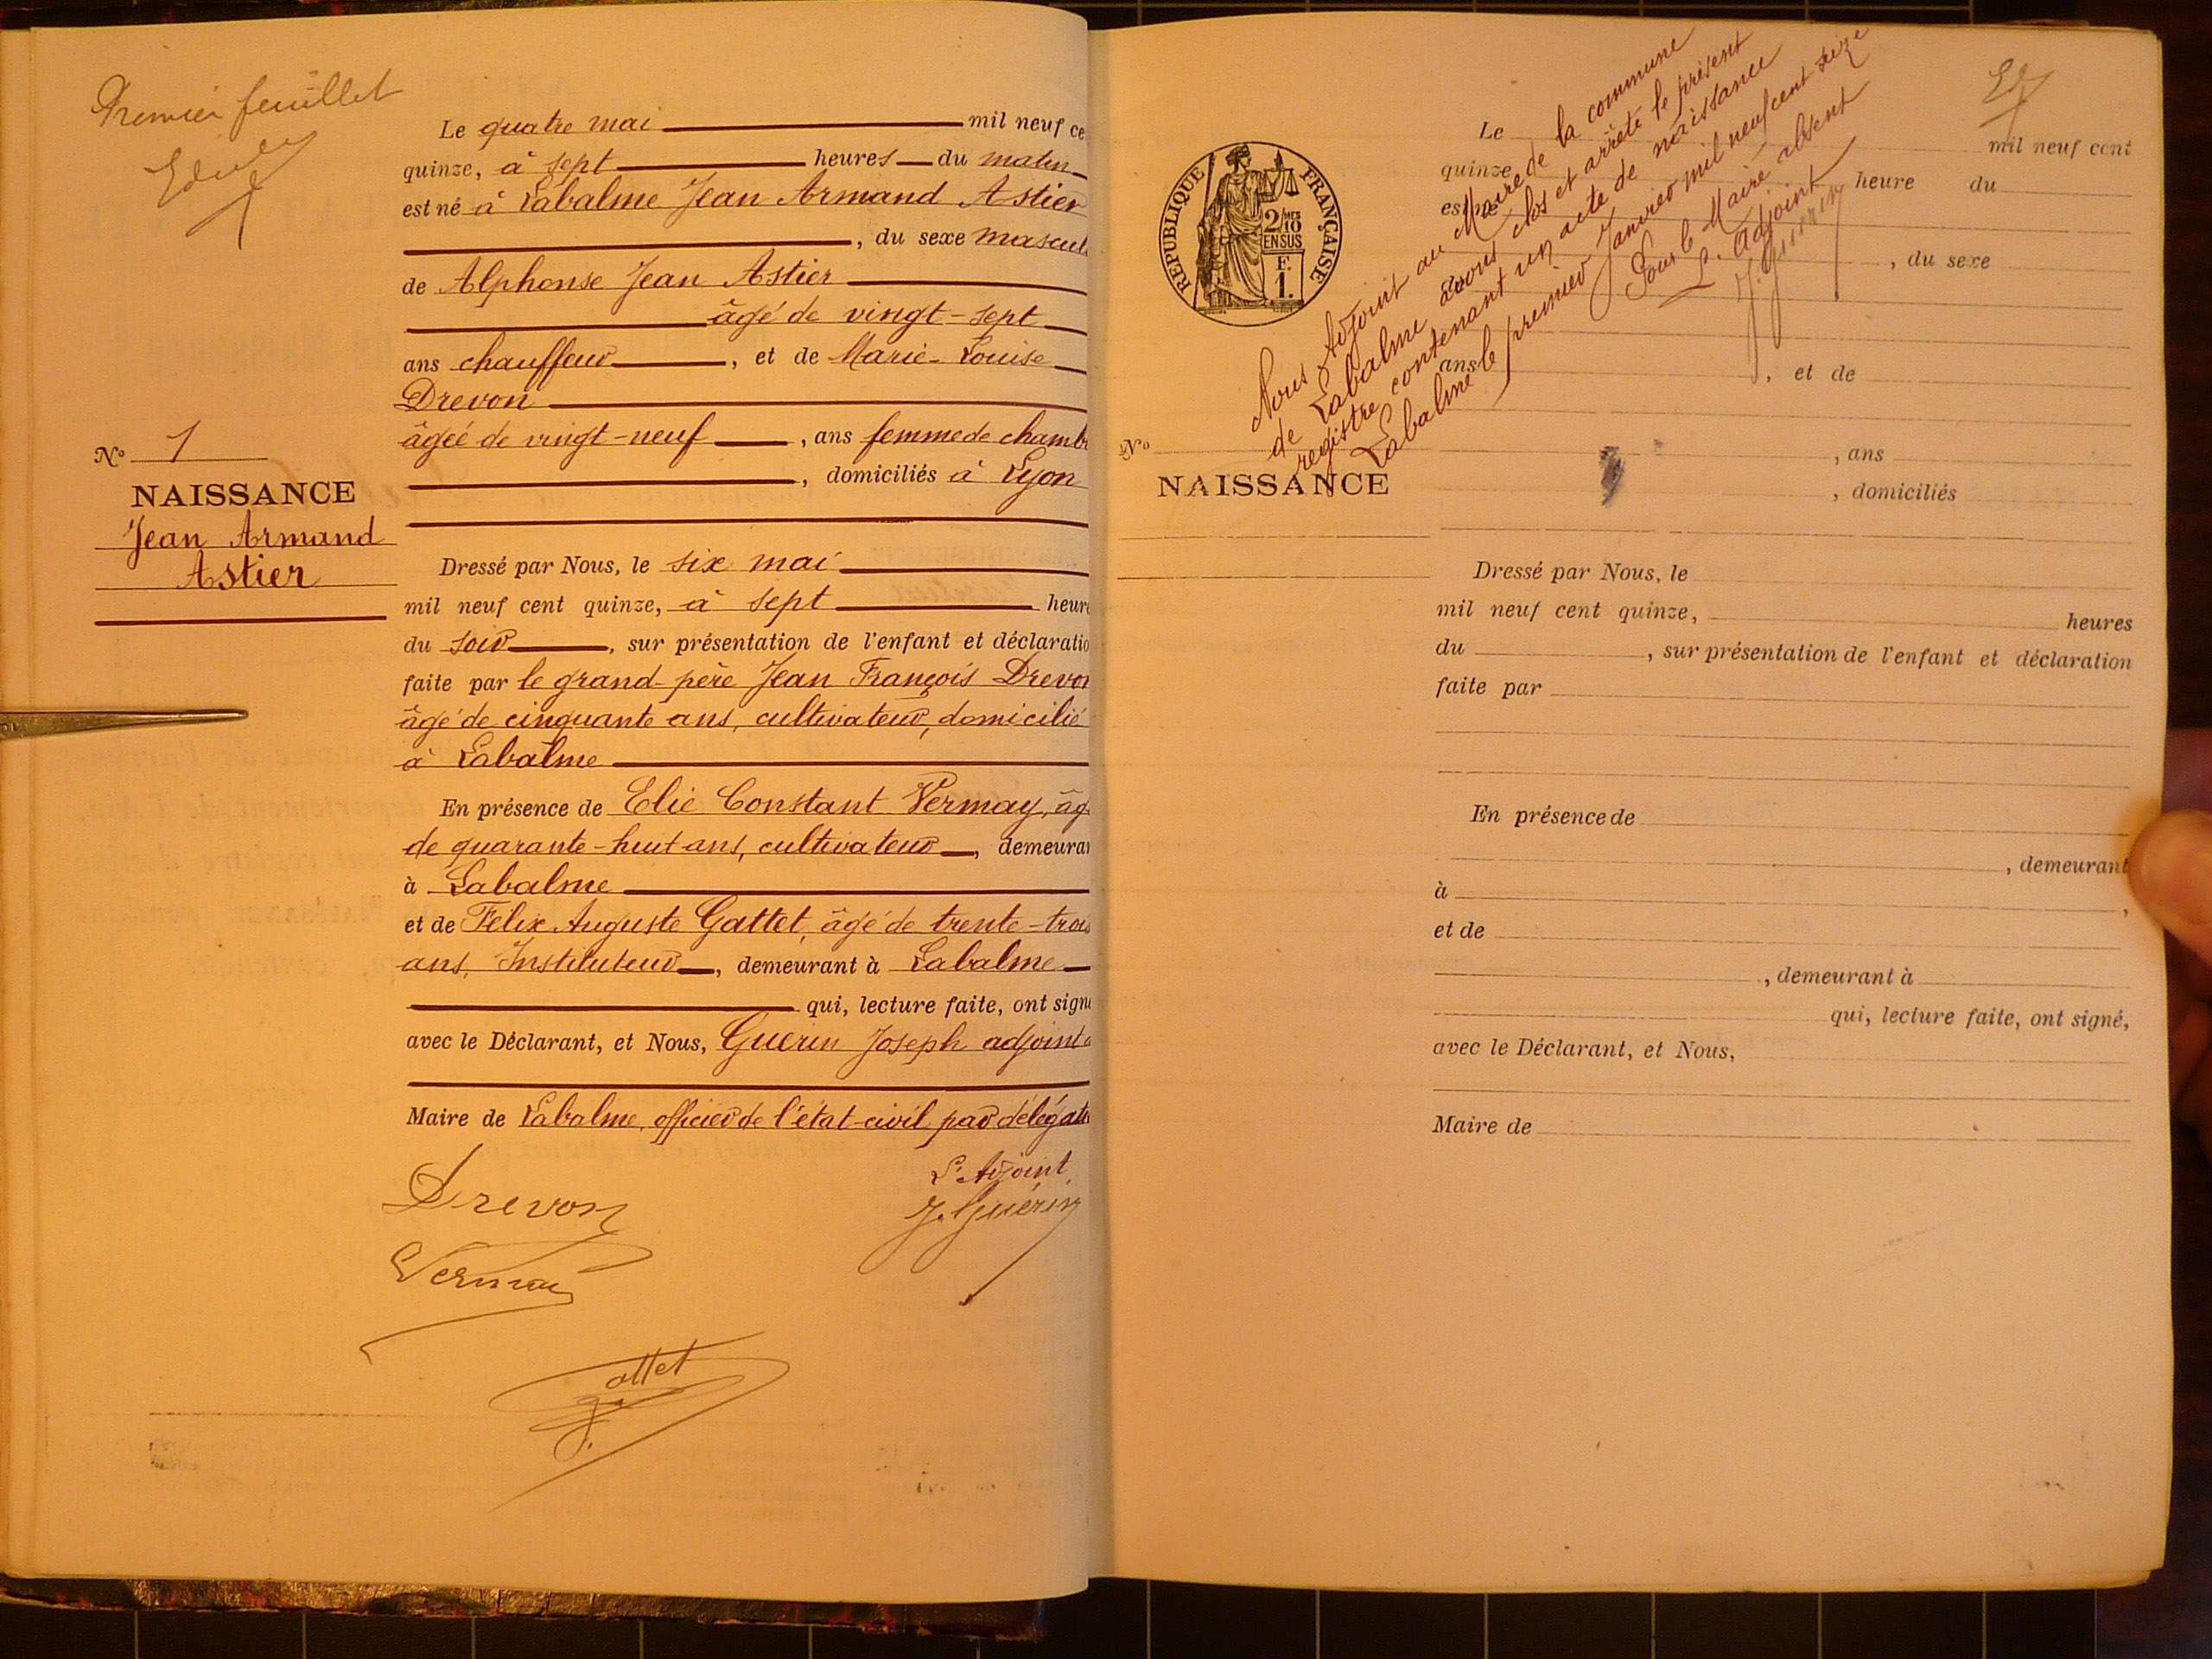 Premier feuillet
Le quatre mai mil neuf ce
quinze, à sept heures du matin
est né à Labalme Jean Armand Astier
, du sexe mascul
de Alphonse Jean Astier
âgé de vingt-sept
ans chauffeur, et de Marie-Louise
Drevon
âgée de vingt-neuf, ans femme de chamb
, domiciliés à Lyon
No 1
NAISSANCE
Jean Armand
Astier
Dressé par Nous, le six mai
mil neuf cent quinze, à sept heure
du soir, sur présentation de l'enfant et déclaratio
faite par le grand-père Jean François Drevon
âgé de cinquante ans, cultivateur, domicilié
à Labalme
En présence de Elie Constant Vermay, âg
de quarante-huit ans, cultivateur, demeuran
à Labalme
et de Félix Auguste Gattet, âgé de trente-trois
ans, Instituteur, demeurant à Labalme
qui, lecture faite, ont signé
avec le Déclarant, et Nous, Guerin Joseph adjoint a
Maire de Labalme, officier de l'état-civil par délégat
L'Adjoint,
Drevon
J. Guérin
Vermay
Gattet
REPUBLIQUE FRANÇAISE
2/10 MES
EN SUS
F.
1.
Nous Adjoint au Maire de la commune
de Labalme avons clos et arrêté le présent
registre contenant un acte de naissance
Labalme le premier Janvier mil neuf cent seize
Pour le Maire absent
L'Adjoint
J. Guerin
Le mil neuf cent
quinze heure du
est né
, du sexe
de
ans, et de
No
NAISSANCE
, ans
, domiciliés
Dressé par Nous, le
mil neuf cent quinze, heures
du , sur présentation de l'enfant et déclaration
faite par
En présence de
, demeurant
à ,
et de
, demeurant à
qui, lecture faite, ont signé,
avec le Déclarant, et Nous,
Maire de